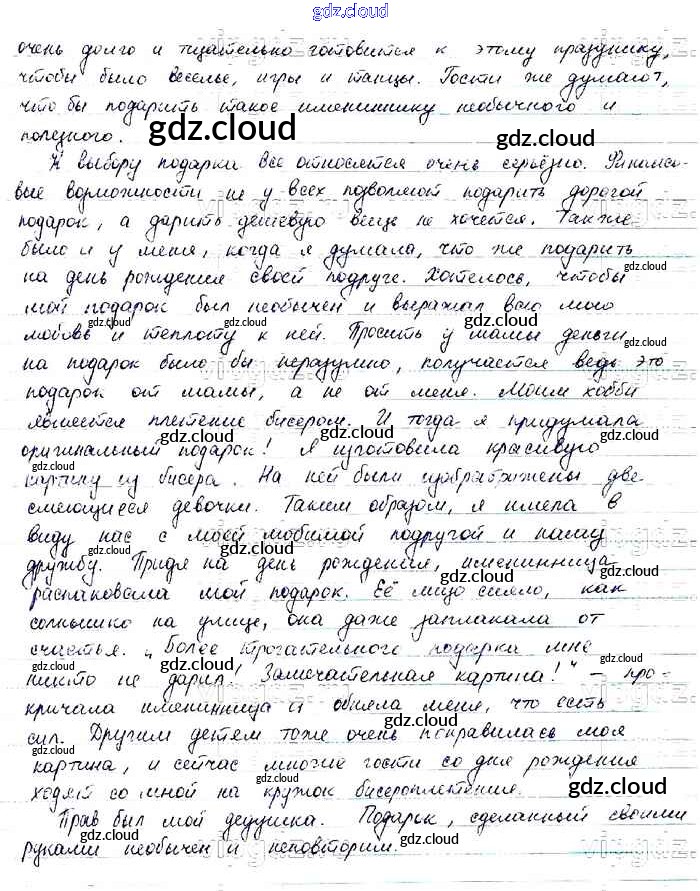 gdz.cloud
очень долго и тщательно готовится к этому празднику,
чтобы было веселье, игры и танцы. Гости же думают,
что бы подарить такое имениннику необычного и
полезного.
К выбору подарки все относятся очень серьёзно. Финансо-
вые возможности не у всех позволяют подарить дорогой
подарок, а дарить дешевую вещь не хочется. Так же
было и у меня, когда я думала, что же подарить
на день рождения своей подруге. Хотелось, чтобы
мой подарок был необычен и выражал всю мою
любовь и теплоту к ней. Просить у мамы деньги
на подарок было бы неразумно, получается ведь это
подарок от мамы, а не от меня. Моим хобби
является плетение бисером. И тогда я придумала
оригинальный подарок! Я изготовила красивую
картину из бисера. На ней были изображены две
смеющиеся девочки. Таким образом, я имела в
виду нас с моей любимой подругой и нашу
дружбу. Придя на день рождения, именинница
распаковала мой подарок. Её лицо сияло, как
солнышко на улице, она даже заплакала от
счастья. „Более трогательного подарка мне
никто не дарил! Замечательная картина!" – про-
кричала именинница и обняла меня, что есть
сил. Другим детям тоже очень понравилась моя
картина, и сейчас многие гости со дня рождения
ходят со мной на кружок бисероплетения.
Прав был мой дедушка. Подарок, сделанный своими
руками необычен и неповторим.